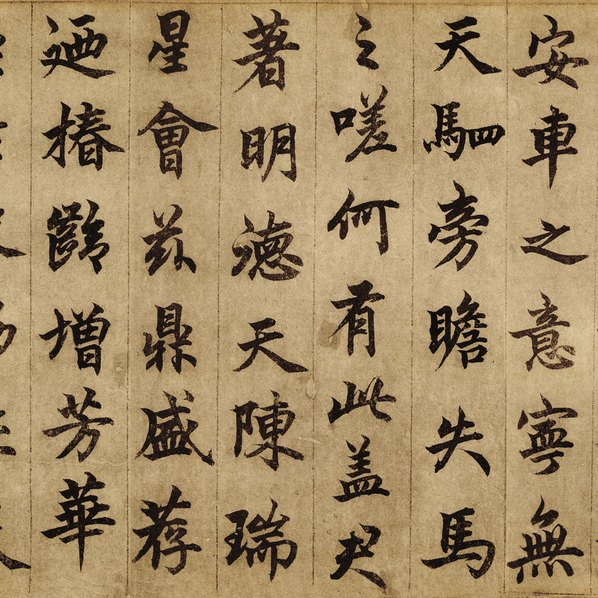 安車之意寧無
天駟旁瞻失馬
之嗟何有此盖
著明德天陳瑞
星會兹鼎盛荐
迺椿齡增芳華